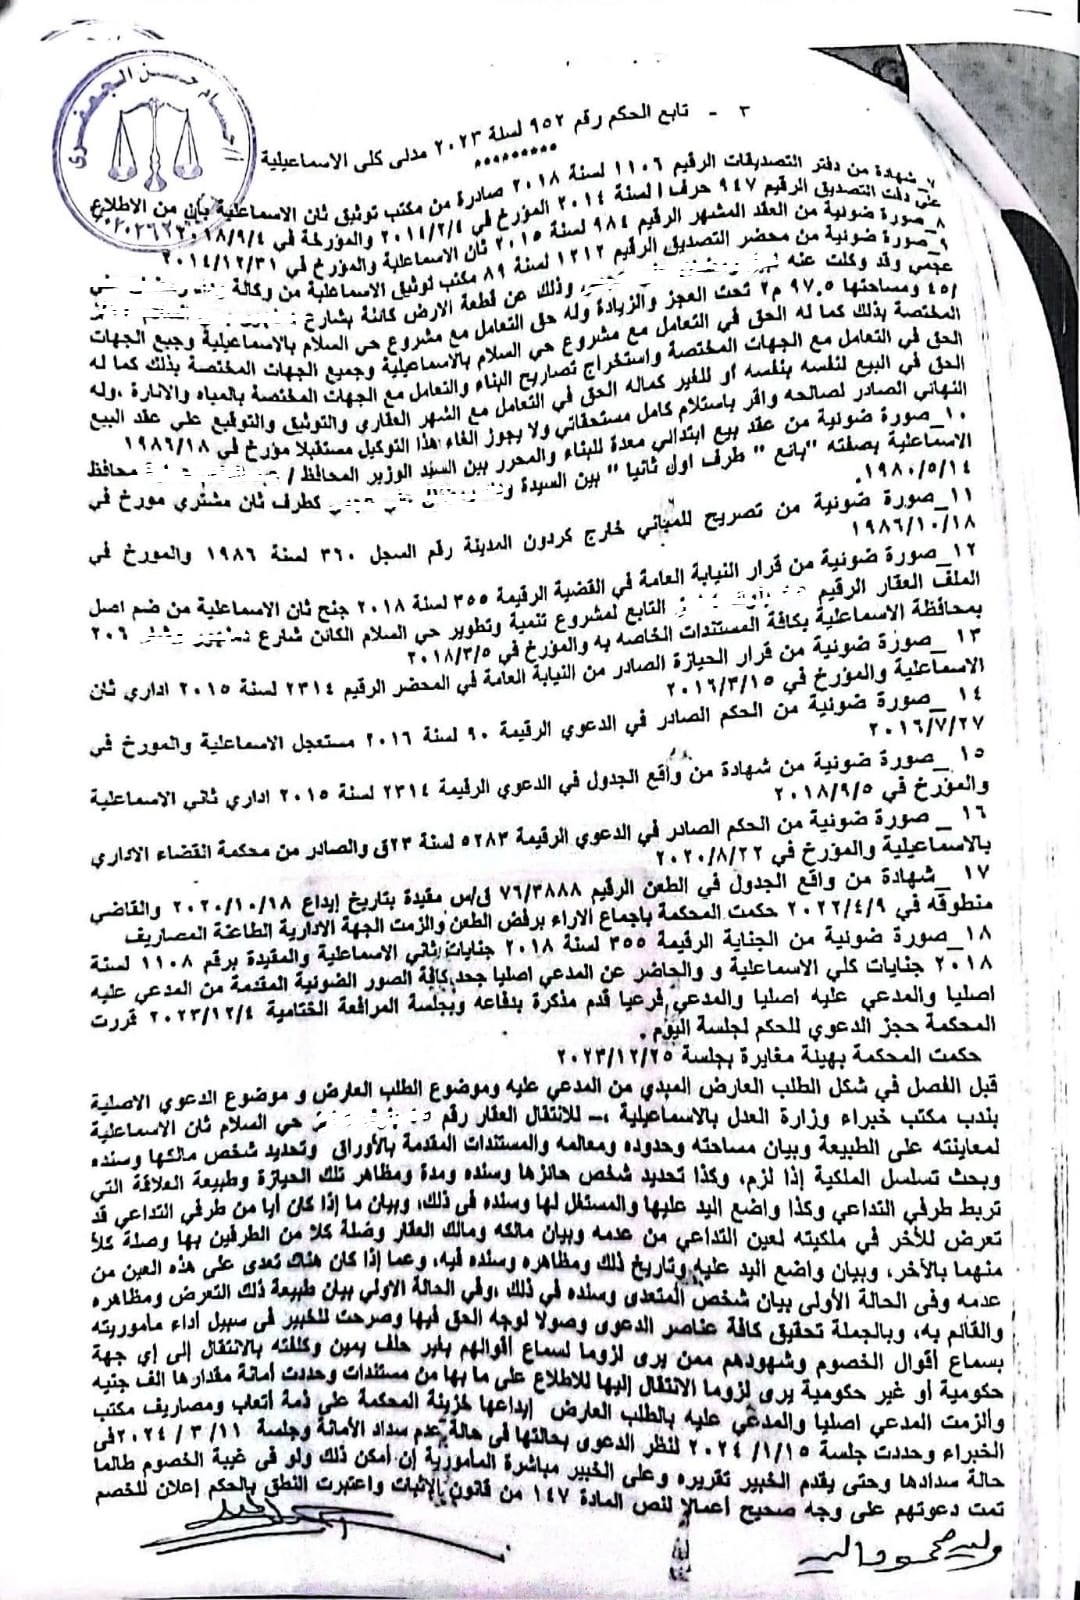 ٣ - تابع الحكم رقم ٩٥٢ لسنة ٢٠٢٣ مدني كلى الاسماعيلية
**********
٧_ شهادة من دفتر التصديقات الرقيم ١١٠٦ لسنة ٢٠١٨ صادرة من مكتب توثيق ثان الاسماعلية بان من الاطلاع
على دفت التصديق الرقيم ٩٤٧ حرف ا لسنة ٢٠١٤ المؤرخ في ٢٠١٤/٢/٤ والمؤرخة في ٢٠١٨/٩/٤
٨_صورة ضونية من العقد المشهر الرقيم ٩٨٤ لسنة ٢٠١٥ ثان الاسماعلية والمؤرخ في ٢٠١٤/١٢/٣١
٩_صورة ضونية من محضر التصديق الرقيم ١٢١٢ لسنة ٨٩ مكتب توثيق الاسماعلية من وكالة
عجمي وقد وكلت عنه وذلك عن قطعة الارض كائنة بشارع
٤٥/ ومساحتها ٩٧.٥ م٢ تحت العجز والزيادة وله حق التعامل مع مشروع حي السلام بالاسماعيلية وجميع الجهات
المختصة بذلك كما له الحق في التعامل مع مشروع حي السلام بالاسماعيلية وجميع الجهات المختصة بذلك كما له
الحق في التعامل مع الجهات المختصة واستخراج تصاريح البناء والتعامل مع الجهات المختصة بالمياه والانارة ،وله
الحق في البيع لنفسه بنفسه أو للغير كماله الحق في التعامل مع الشهر العقاري والتوثيق والتوقيع علي عقد البيع
النهائي الصادر لصالحه واقر باستلام كامل مستحقاتي ولا يجوز الغاء هذا التوكيل مستقبلا مؤرخ في
١٠_صورة ضونية من عقد بيع ابتدائي معدة للبناء والمحرر بين السيد الوزير المحافظ / محافظ
الاسماعلية بصفته "بائع " طرف اول ثانيا " بين السيدة كطرف ثان مشتري مورخ في
١٩٨٠/٥/١٤.
١١_صورة ضونية من تصريح للمباني خارج كردون المدينة رقم السجل ٣٦٠ لسنة ١٩٨٦ والمورخ في
١٩٨٦/١٠/١٨
١٢_صورة ضونية من قرار النيابة العامة في القضية الرقيمة ٣٥٥ لسنة ٢٠١٨ جنح ثان الاسماعلية من ضم اصل
الملف العقار الرقيم التابع لمشروع تنمية وتطوير حي السلام الكائن شارع ٢٠٦
بمحافظة الاسماعلية بكافة المستندات الخاصه به والمؤرخ في ٢٠١٨/٣/٥
١٣_صورة ضونية من قرار الحيازة الصادر من النيابة العامة في المحضر الرقيم ٢٣١٤ لسنة ٢٠١٥ اداري ثان
الاسماعلية والمؤرخ في ٢٠١٦/٣/١٥
١٤_صورة ضونية من الحكم الصادر في الدعوي الرقيمة ٩٠ لسنة ٢٠١٦ مستعجل الاسماعلية والمورخ في
٢٠١٦/٧/٢٧
١٥_صورة ضونية من شهادة من واقع الجدول في الدعوي الرقيمة ٢٣١٤ لسنة ٢٠١٥ اداري ثاني الاسماعلية
والمؤرخ في ٢٠١٨/٩/٥
١٦_ صورة ضونية من الحكم الصادر في الدعوي الرقيمة ٥٢٨٣ لسنة ٢٣ق والصادر من محكمة القضاء الاداري
بالاسماعيلية والمؤرخ في ٢٠٢٠/٨/٢٢
١٧_شهادة من واقع الجدول في الطعن الرقيم ٧٦/٣٨٨٨ ق/س مقيدة بتاريخ إيداع ٢٠٢٠/١٠/١٨ والقاضي
منطوقه في ٢٠٢٢/٤/٩ حكمت المحكمة باجماع الاراء برفض الطعن والزمت الجهة الادارية الطاعنة المصاريف
١٨_صورة ضونية من الجناية الرقيمة ٣٥٥ لسنة ٢٠١٨ جنايات ثاني الاسماعلية والمقيدة برقم ١١٠٨ لسنة
٢٠١٨ جنايات كلي الاسماعلية و والحاضر عن المدعي اصليا جحد كافة الصور الضونية المقدمة من المدعي عليه
اصليا والمدعي عليه اصليا والمدعي فرعيا قدم مذكرة بدفاعه وبجلسة المرافعة الختامية ٢٠٢٣/١٢/٤ قررت
المحكمة حجز الدعوي للحكم لجلسة اليوم .
حكمت المحكمة بهيئة مغايرة بجلسة ٢٠٢٣/١٢/٢٥
قبل الفصل في شكل الطلب العارض المبدي من المدعي عليه وموضوع الطلب العارض و موضوع الدعوي الاصلية
بندب مكتب خبراء وزارة العدل بالاسماعيلية ،_ للانتقال العقار رقم حي السلام ثان الاسماعلية
لمعاينته على الطبيعة وبيان مساحته وحدوده ومعالمه والمستندات المقدمة بالأوراق وتحديد شخص مالكها وسنده
وبحث تسلسل الملكية إذا لزم، وكذا تحديد شخص حائزها وسنده ومدة ومظاهر تلك الحيازة وطبيعة العلاقة التي
تربط طرفي التداعي وكذا واضع اليد عليها والمستغل لها وسنده فى ذلك، وبيان ما إذا كان أيا من طرفي التداعي قد
تعرض للأخر في ملكيته لعين التداعي من عدمه وبيان مالكه ومالك العقار وصلة كلا من الطرفين بها وصلة كلا
منهما بالأخر، وبيان واضع اليد عليه وتاريخ ذلك ومظاهره وسنده فيه، وعما إذا كان هناك تعدى على هذه العين من
عدمه وفى الحالة الأولى بيان شخص المتعدى وسنده في ذلك ،وفي الحالة الاولي بيان طبيعة ذلك التعرض ومظاهره
والقائم به، وبالجملة تحقيق كافة عناصر الدعوى وصولا لوجه الحق فيها وصرحت للخبير فى سبيل أداء مأموريته
بسماع أقوال الخصوم وشهودهم ممن يرى لزوما لسماع أقوالهم بغير حلف يمين وكلفته بالانتقال إلى إي جهة
حكومية أو غير حكومية يرى لزوما الانتقال إليها للاطلاع على ما بها من مستندات وحددت أمانة مقدارها الف جنيه
وألزمت المدعي اصليا والمدعي عليه بالطلب العارض إيداعها خزينة المحكمة على ذمة أتعاب ومصاريف مكتب
الخبراء وحددت جلسة ٢٠٢٤/١/١٥ لنظر الدعوى بحالتها فى حالة عدم سداد الأمانة وجلسة ٢٠٢٤/٣/١١ فى
حالة سدادها وحتى يقدم الخبير تقريره وعلى الخبير مباشرة المأمورية إن أمكن ذلك ولو فى غيبة الخصوم طالما
تمت دعوتهم على وجه صحيح اعمالا لنص المادة ١٤٧ من قانون الإثبات واعتبرت النطق بالحكم إعلان للخصم